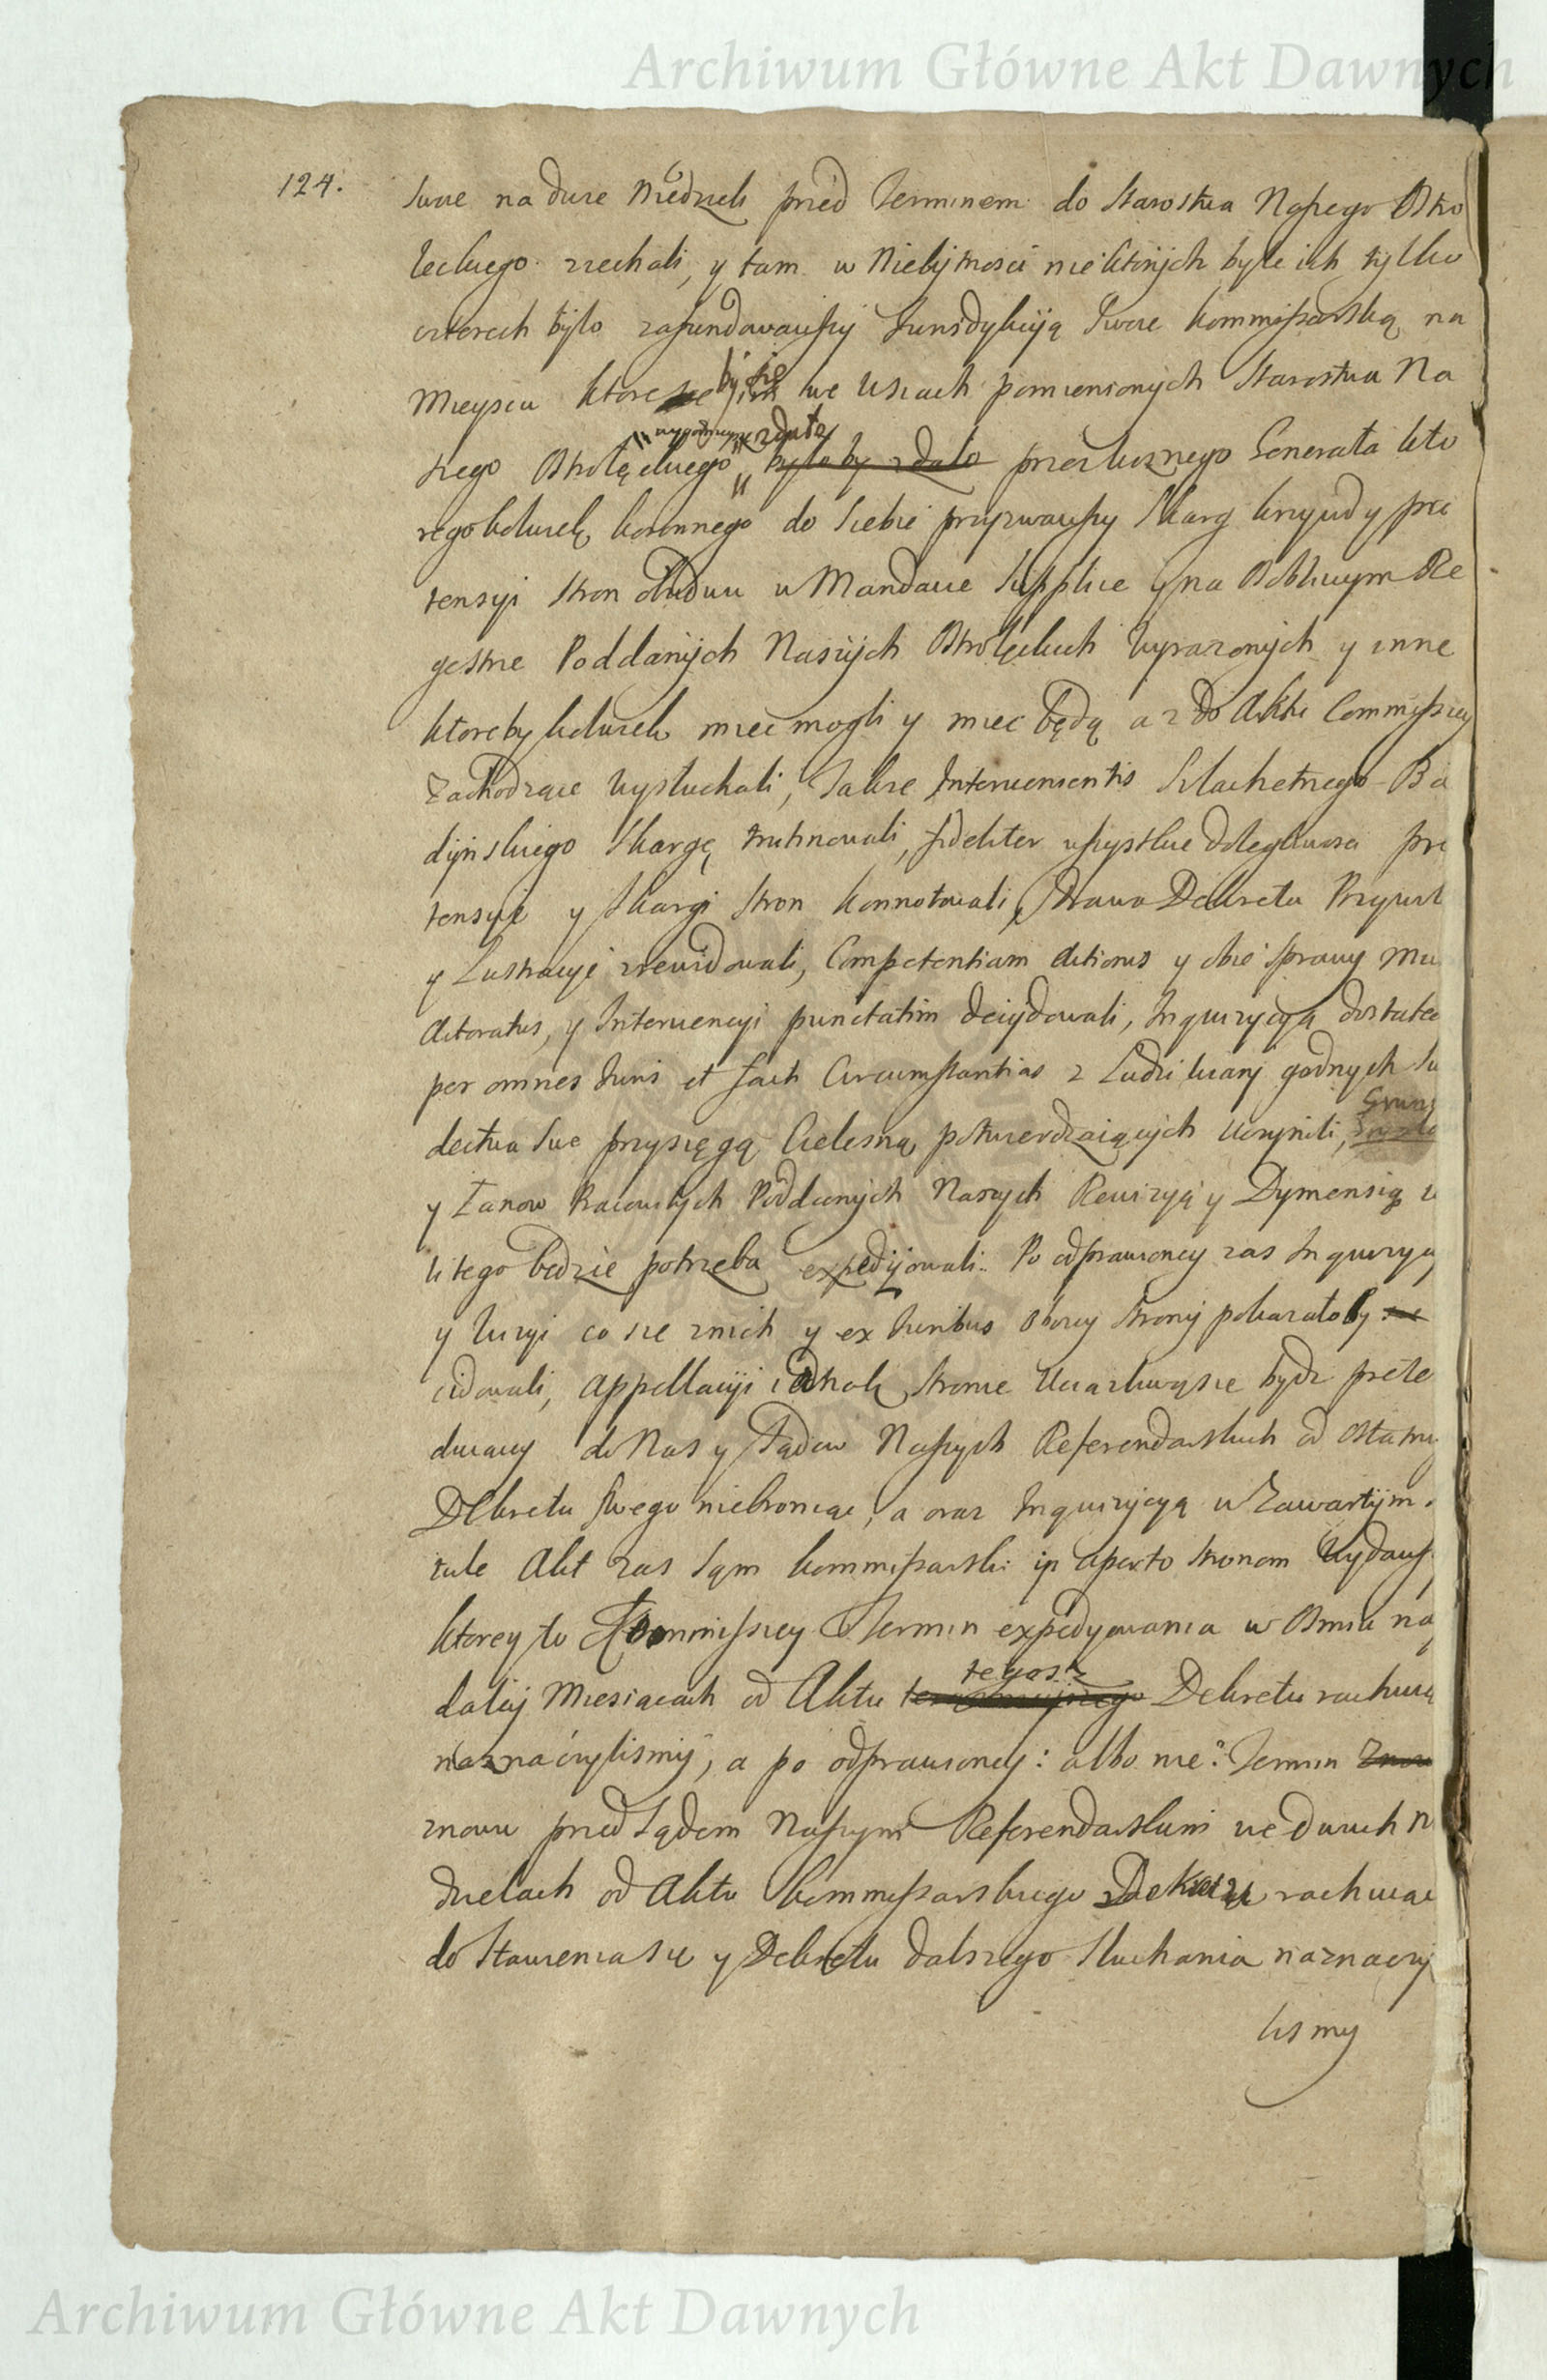 Archiwum Główne Akt Dawnych
124.
swe na dwie Niedzieli przed Terminem do Starostwa Naszego Ostro
łęckiego ziechali, y tam w Niebytnosci niektórych byle ich tylko
czterech było zafundowawszy Jurisdykcyą Swoie Kommissarską na
Mieyscu ktore by się we wsiach pomienionych Starostwa Na
szego Ostrołęckiego wygodnieysze zdało było by zdało przez woznego Generała kto
regokolwiek koronnego do siebie przyzwawszy Skarg krzywd y pre
tensyi Stron obudwu w Mandacie Supplice y na Osobliwym Re
gestrze Poddanych Naszych Ostrołęckich wyrazonych y inne
ktoreby kolwiek miec mogli y miec będą az do Aktu Commissiey
Zachodzące wysłuchali, Takze Intervenientis Szlachetnego Ba
dyńskiego Skargę trutinowali, fideliter wszystkie dolegliwosci pre
tensyie y Skargi Stron konnotowali, Prawa Dekreta Przywil
y Lustracye zrewidowali, Competentiam Actionis y obie Sprawy Mu
Actoratus, y Interwencyi punctatim decydowali, Inquizycyą dostatec
per omnes Juris et facti Circumstantias z Ludzi wiary godnych Sw
dectwa Swe przysięgą Cielesną potwierdzaiących uczynili, Grunt
y Łanow Poddanych Naszych Rewizyą y Dymensią
li tego będzie potrzeba expedyowali. Po odprawioney zas Inquizycy
y Wizyi co się z nich y ex Juribus obóey Strony pokazałoby
cidowali, appellacyi iednak Stronie Uciązliwąsię bydz prete
duiącey do Nas y Sądow Naszych Referendarskich od ostatni
Dekretu swego niebroniąc, a oraz Inquizycyą w Zawartym.
tule Akt zas Sąm kommissarski in aperto stronom wydawsz
ktorey to Kommissiey Termin expedyowania w Osmiu na
daléy Miesiącach od Aktu tegosz Dekretu rachuią
naznaczylismy, a po odprawioney: albo nie: Termin
znowu przed Sądem Naszym Referendarskim we dwuch N
dzielach od Aktu kommissarskiego Dekretu rachuiąc
do Stawienia się y Dekretu dalszego Słuchania naznaczy
lismy
Archiwum Główne Akt Dawnych